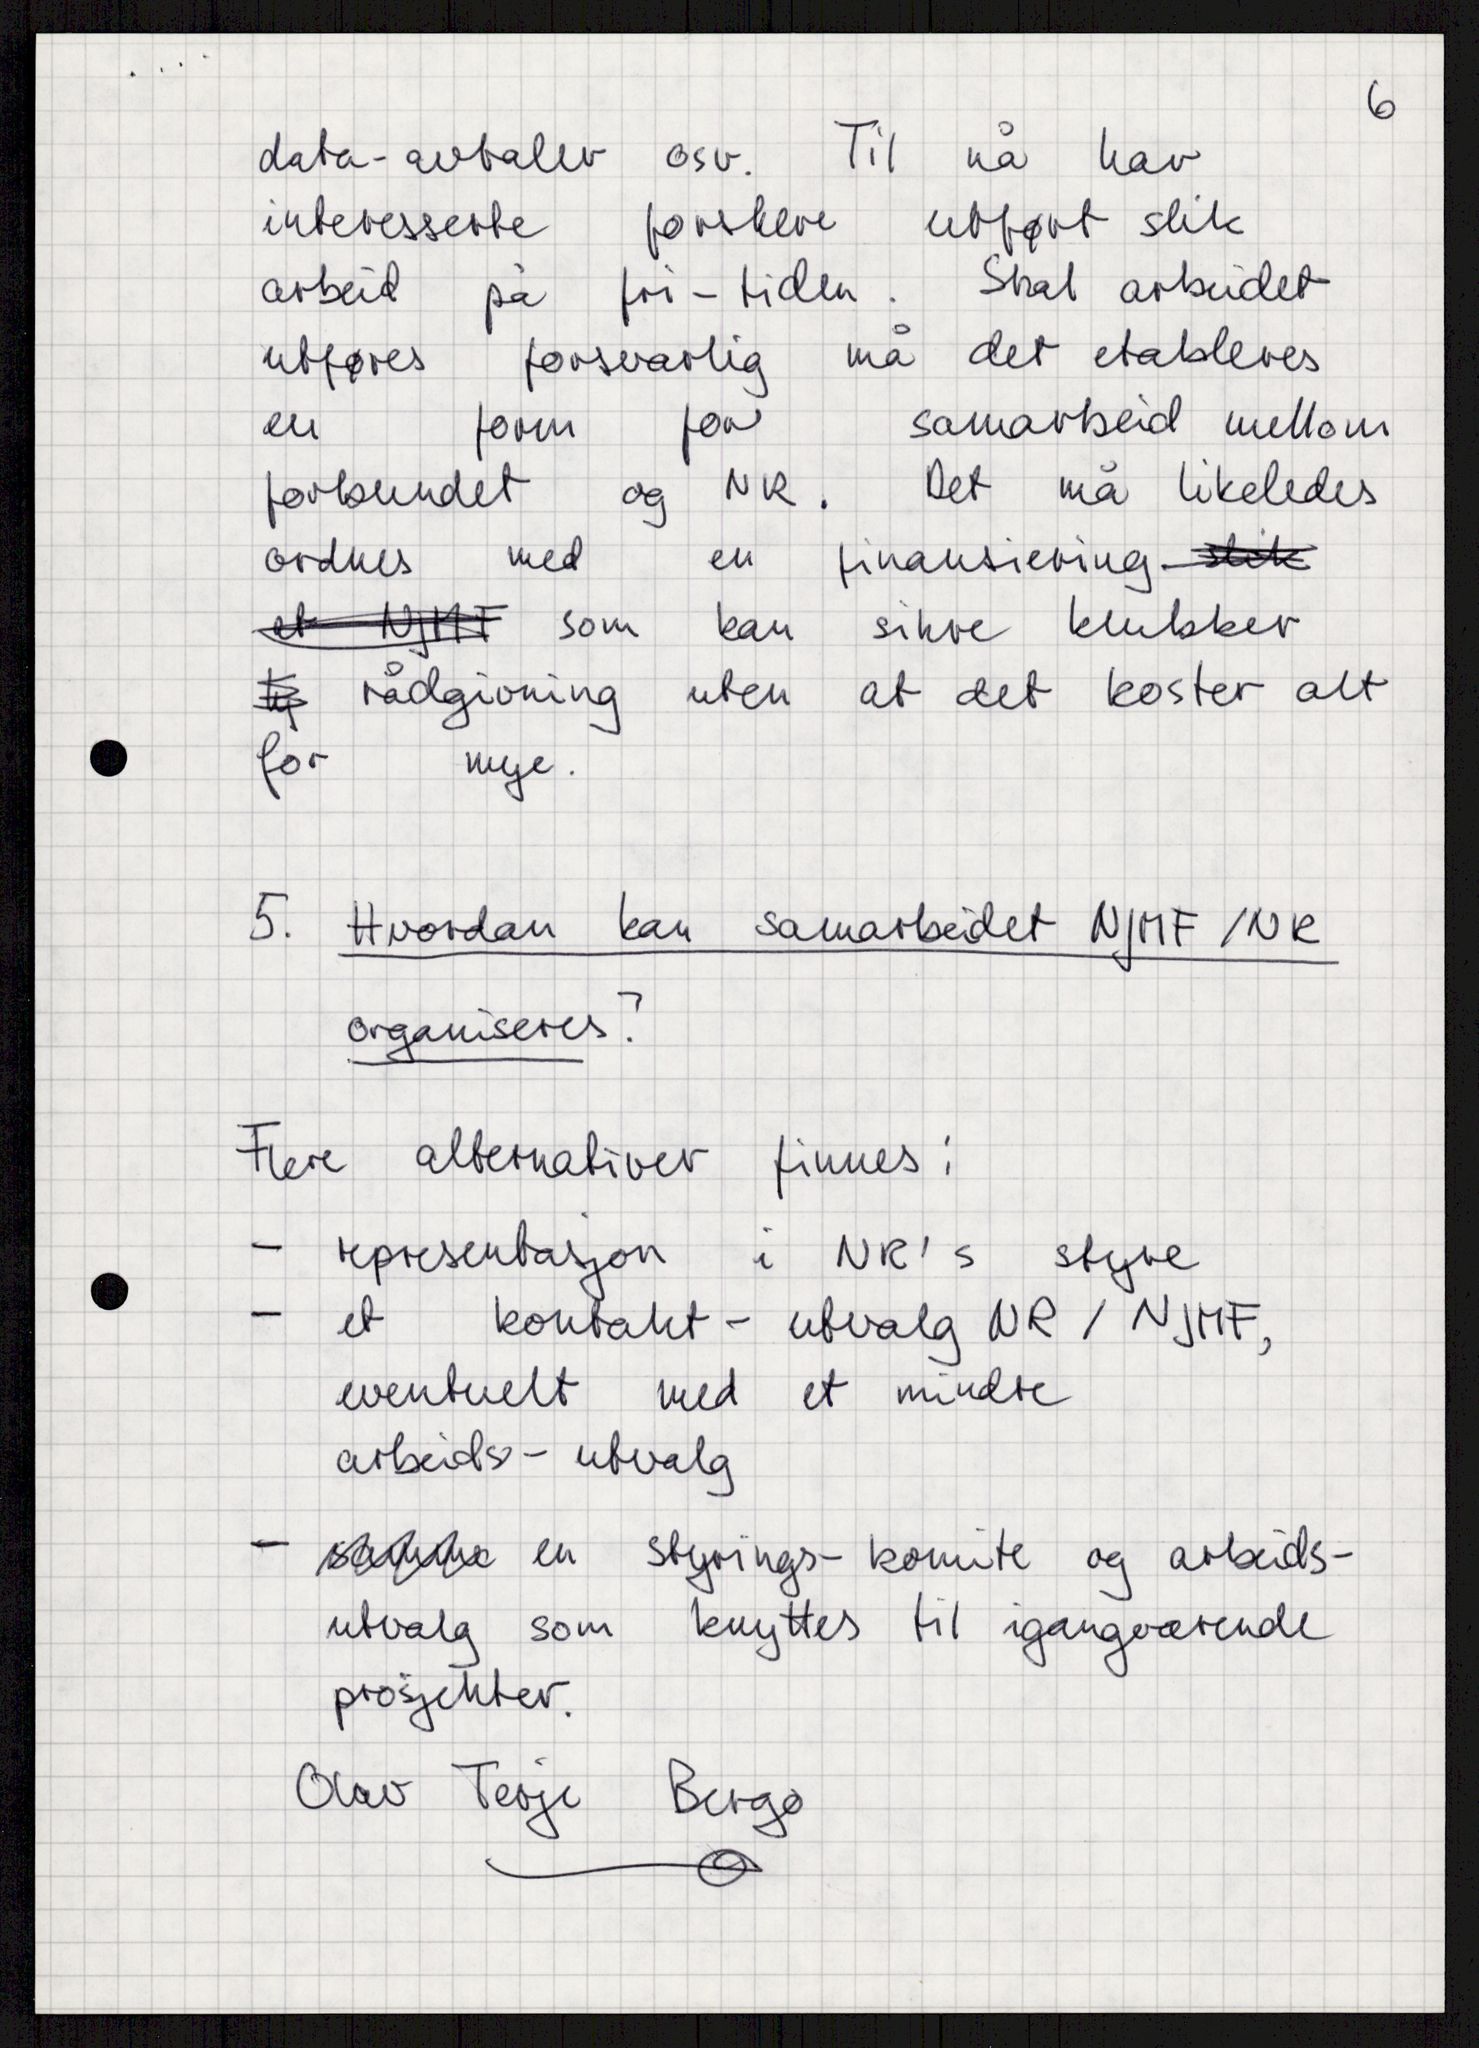 6
data-avtaler osv. Til nå har
interesserte forskere utført slik
arbeid på fri-tiden. Skal arbeidet
utføres forsvarlig må det etableres
en form for samarbeid mellom
forbundet og NR. Det må likeledes
ordnes med en finansiering slik
et NJMF som kan sikre klubber
rådgivning uten at det koster alt
for mye.
5. Hvordan kan samarbeidet NJMF/NR
organiseres?
Flere alternativer finnes:
- representasjon i NR's styre
- et kontakt-utvalg NR/NJMF,
eventuelt med et mindre
arbeids-utvalg
- samme en styrings-komite og arbeids-
utvalg som knyttes til igangværende
prosjekter.
Olav Terje Bergo